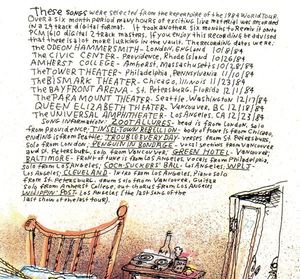 THESE SONGS WERE SELECTED FROM THE REPERTOIRE OF THE 1984 WORLD TOUR.
OVER A SIX MONTH PERIOD MANY HOURS OF EXCITING LIVE MATERIAL WAS RECORDED
(IN A 24 TRACK DIGITAL FORMAT). IT TOOK ANOTHER SIX MONTHS TO REMIX IT ONTO
PCM 1610 DIGITAL 2 TRACK MASTERS. IF YOU ENJOY THIS RECORD BE ADVISED
THAT THERE IS A LOT MORE LURKING IN THE VAULT. THE RECORDING DATES WERE:
THE ODEON HAMMERSMITH - LONDON, ENGLAND
THE CIVIC CENTER - PROVIDENCE, RHODE ISLAND 10/26/84
AMHERST COLLEGE - AMHERST, MASSACHUSETTS 10/28/84
THE TOWER THEATER - PHILADELPHIA, PENNSYLVANIA 11/10/84
THE BISMARK THEATER - CHICAGO, ILLINOIS 11/23/84
THE BAYFRONT ARENA - ST. PETERSBURG, FLORIDA 12/1/84
THE PARAMOUNT THEATER - SEATTLE, WASHINGTON 12/17/84
QUEEN ELIZABETH THEATER - VANCOUVER, BC 12/18/84
THE UNIVERSAL AMPHITHEATER - LOS ANGELES, CA 12/23/84
SONG INFORMATION: ZOOT ALLURES - HEAD IS FROM LONDON, SOLO
FROM PROVIDENCE; TINSEL-TOWN REBELLION - BODY OF TUNE IS FROM CHICAGO,
ENDING IS FROM SEATTLE; TROUBLE EVERY DAY - VERSES FROM ST. PETERSBURG,
SOLO FROM LONDON; PENGUIN IN BONDAGE - VOCAL SECTIONS FROM VANCOUVER
AND ST. PETERSBURG, SOLO FROM VANCOUVER; GREEN HOTEL - VANCOUVER;
BALTIMORE - FRONT OF TUNE IS FROM LOS ANGELES, VOCALS FROM PHILADELPHIA,
SOLO FROM LOS ANGELES; COCK-SUCKERS' BALL - LOS ANGELES; WPLJ -
LOS ANGELES; CLEVELAND - INTRO FROM LOS ANGELES, PIANO SOLO
FROM ST. PETERSBURG, DRUM SOLO FROM VANCOUVER, GUITAR
SOLO FROM AMHERST COLLEGE, OUT CHORUS FROM LOS ANGELES
WHIPPIN' POST - LOS ANGELES (THE LAST SONG OF THE
LAST SHOW OF THE LAST TOUR).